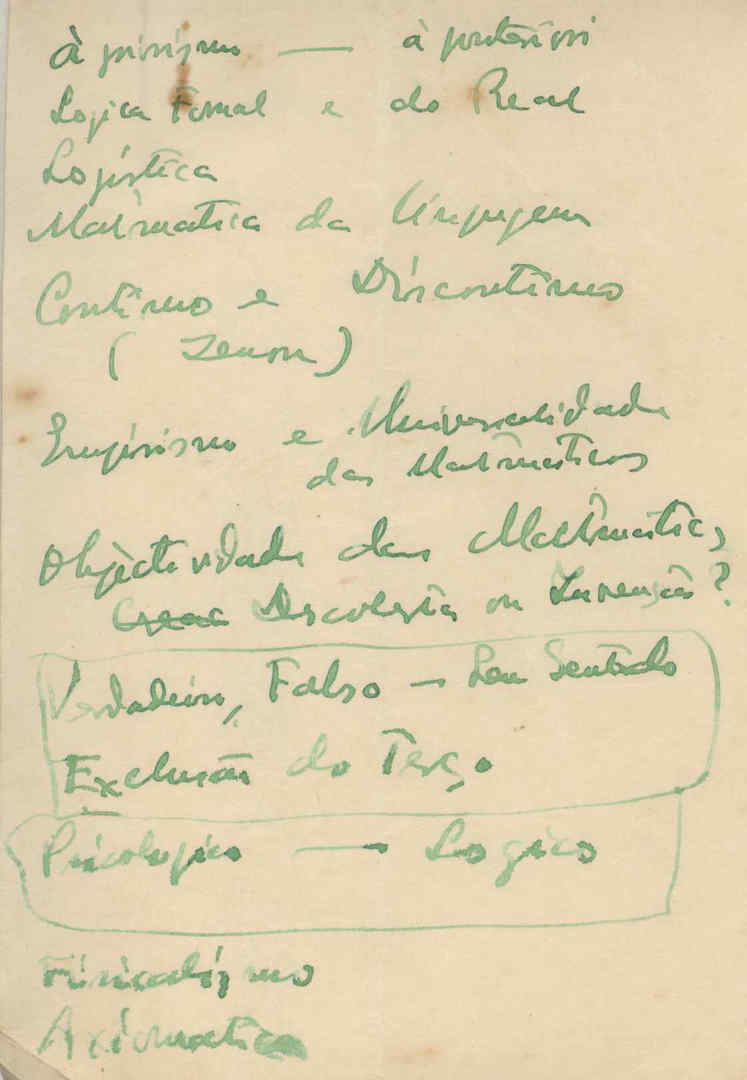 à priorismo — à posteriori
Logica Formal e do Real
Logística
Matématica da linguagem
Contínuo e Discontínuo
( Zenon )
Empirismo e Universalidade
das Matématicas
Objectividade das Matématicas
Descoberta ou Invenção?
Verdadeiro, Falso — Sem Sentido
Exclusão do Terço
Psicologico — Logico
Fisicalismo
Axiomatica